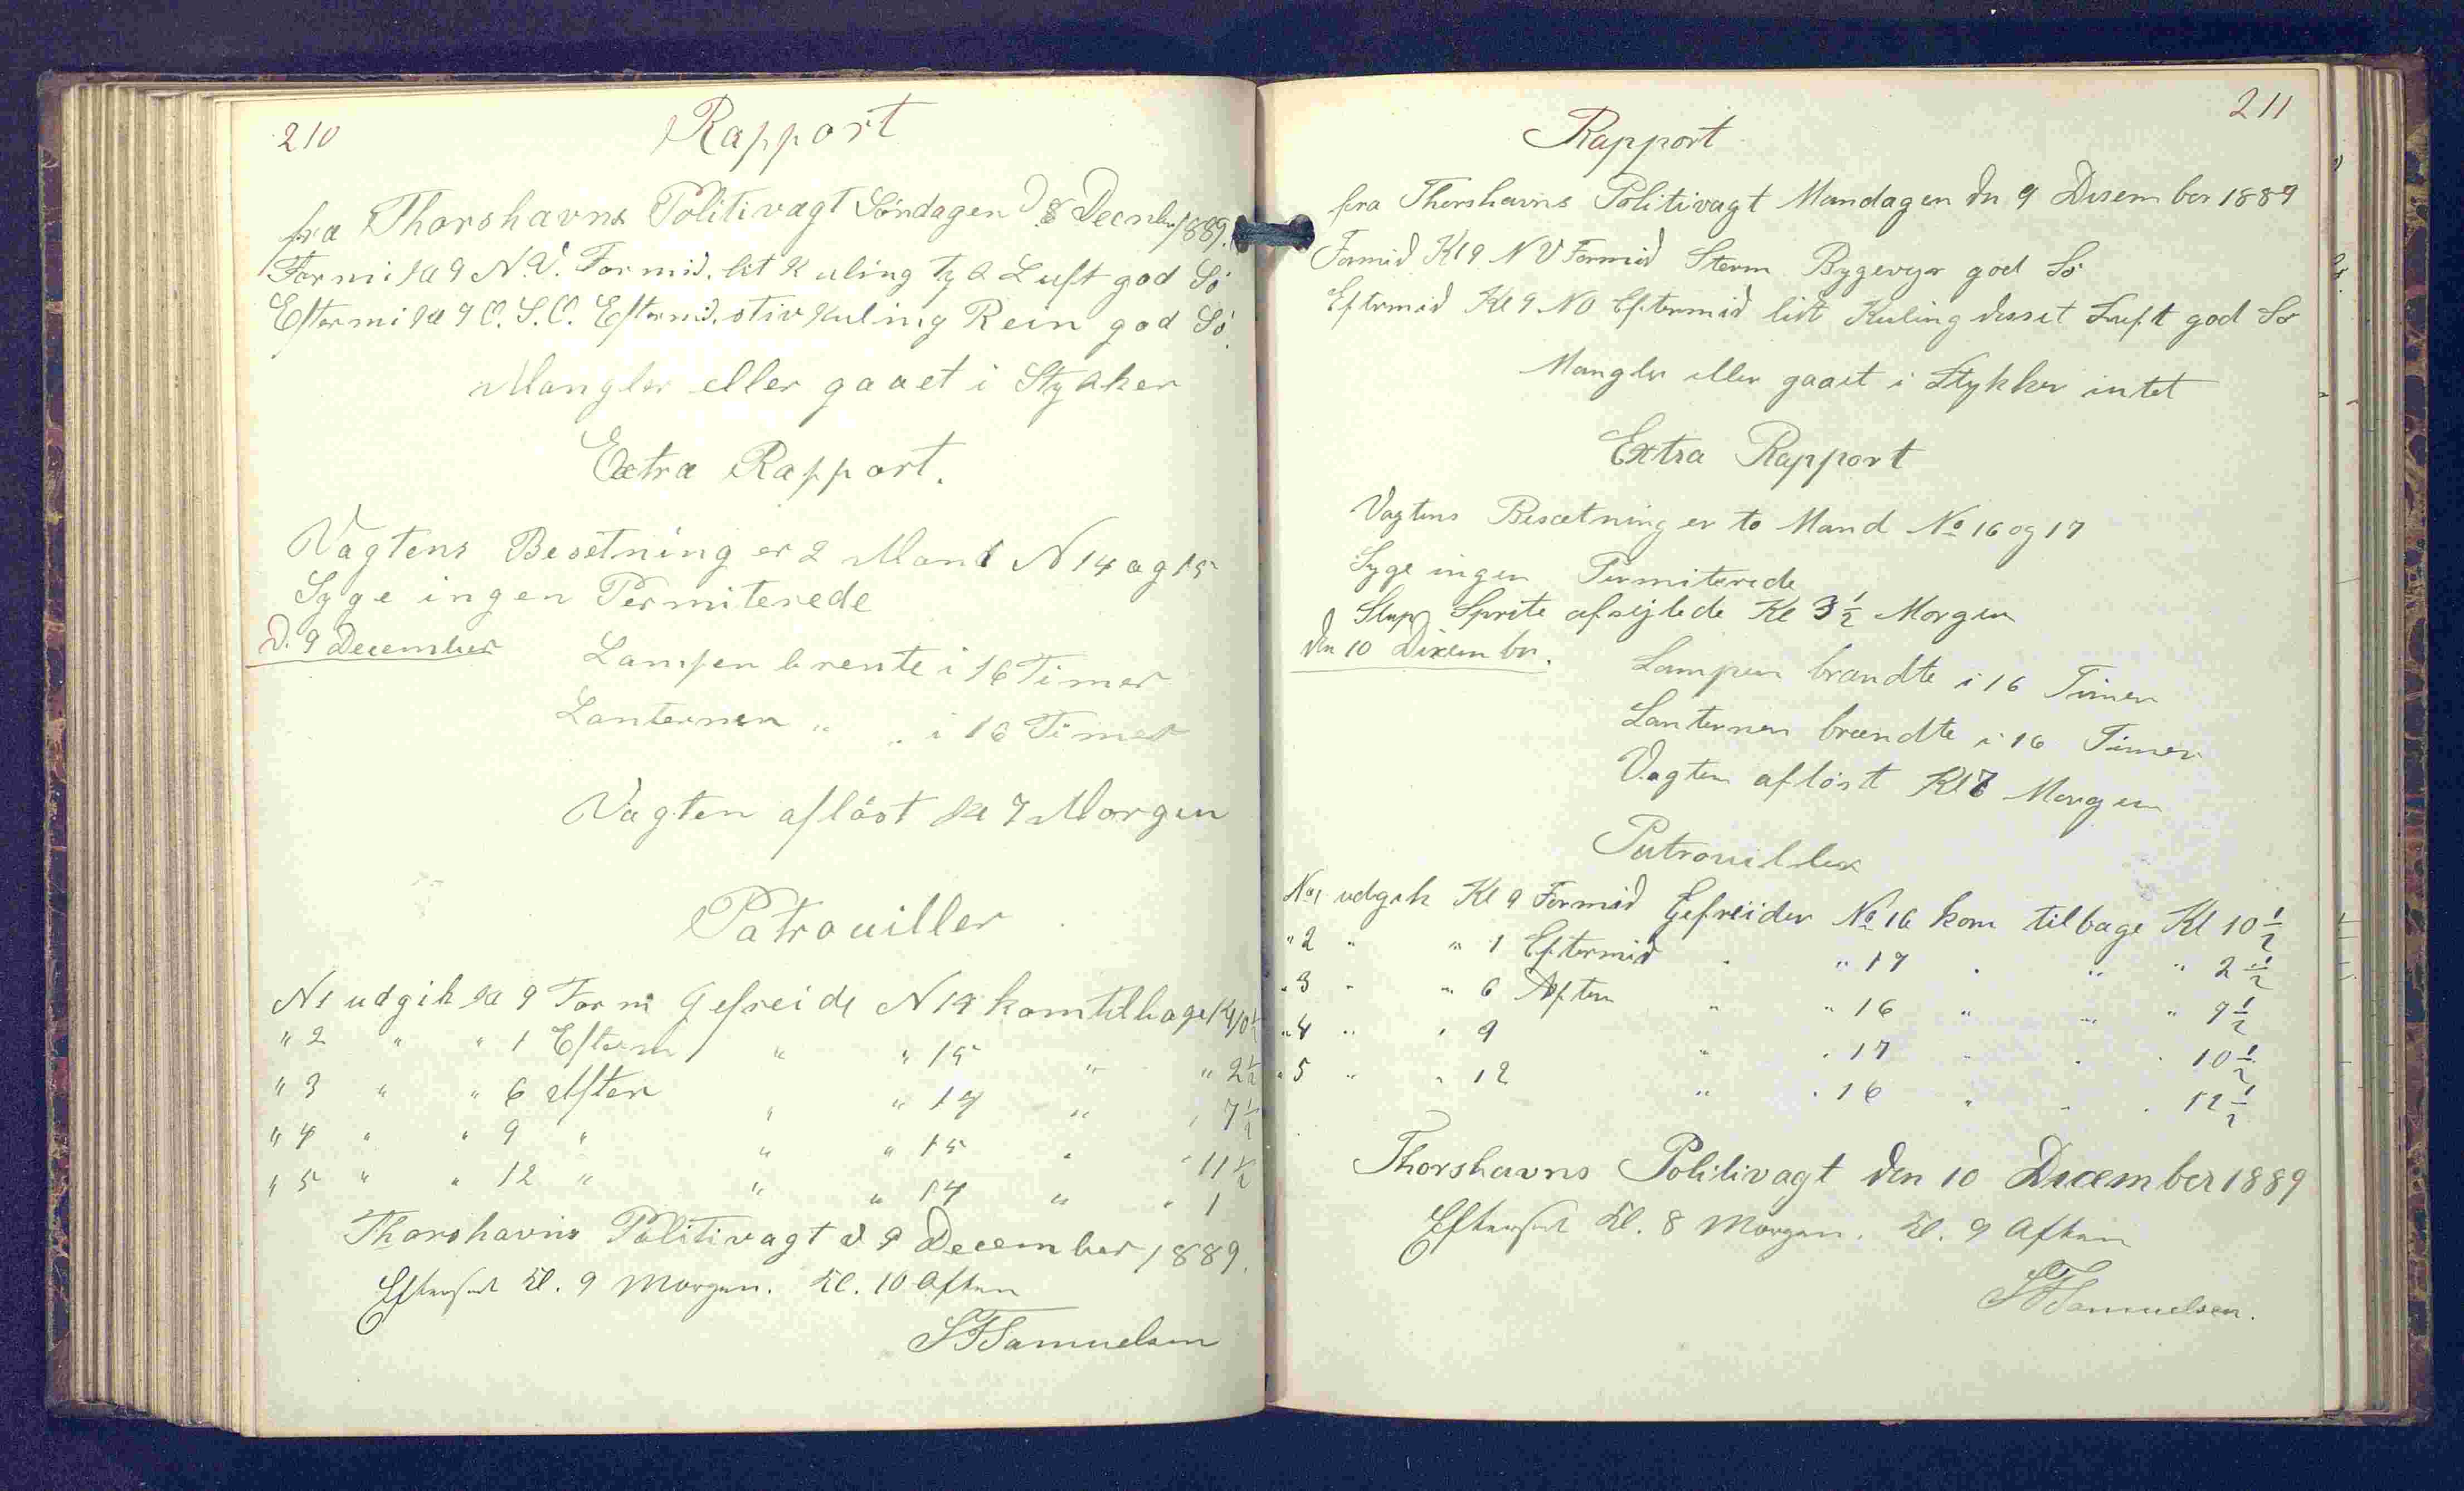 210
Rapport
fra Thorshavns Politivagt Söndagen D 8 Decmber 1889.
Formi Kl 9 N.V. Formid. lit Kuling Tyk Luft god Sö
Eftermi Kl 9 O.S.O. Eftermid. stiv Kuling Rein god Sö.
Mangler eller gaaet i Stykker
Extra Rapport.
Vagtens Besetning er 2 Mand N 14 og 15
Syge ingen Permiterede
D. 9 December
Lampen brente i 16 Timer
Lanternen " " i 16 Timer
Vagten aflöst Kl 7 Morgen
Patrouiller
N1 udgik Kl 9 Formi Gefreide N 14 kom tilbage Kl 10½
" 2 " " 1 Efterm " " 15 " " 2½
" 3 " " 6 After " " 14 " " 7½
" 4 " " 9 " " " 15 " " 11½
" 5 " " 12 " " " 14 " " 1
Thorshavns Politivagt d 9 December 1889.
Efterset Kl. 9 Morgen. Kl. 10 Aften
Samuelsen
211
Rapport
fra Thorshavns Politivagt Mandagen dn 9 Disember 1889
Formid Kl 9 NV Formid Storm Bygevejr god Sö
Eftermid Kl 9 NO Eftermid lidt Kuling disset Luft god Sö
Mangler eller gaaet i Stykker intet
Extra Rapport
Vagtens Besætning er to Mand No 16 og 17
Syge ingen Permiterede
Slup Sprite afsejlede Kl 3½ Morgen
den 10 December.
Lampen brændte i 16 Timer
Lanternen brændte i 16 Timer
Vagten aflöst Kl 7 Morgen
Patrouiller
No 1 udgik Kl 9 Formid Gefreider No 16 kom tilbage Kl 10½
" 2 " " 1 Eftermid " " 17 " " " 2½
" 3 " " 6 Aften " " 16 " " " 9½
" 4 " " 9 " " 17 " " " 10½
" 5 " " 12 " " 16 " " " 12½
Thorshavns Politivagt den 10 December 1889
Efterset Kl. 8 Morgen. Kl. 9 Aften
Samuelsen.